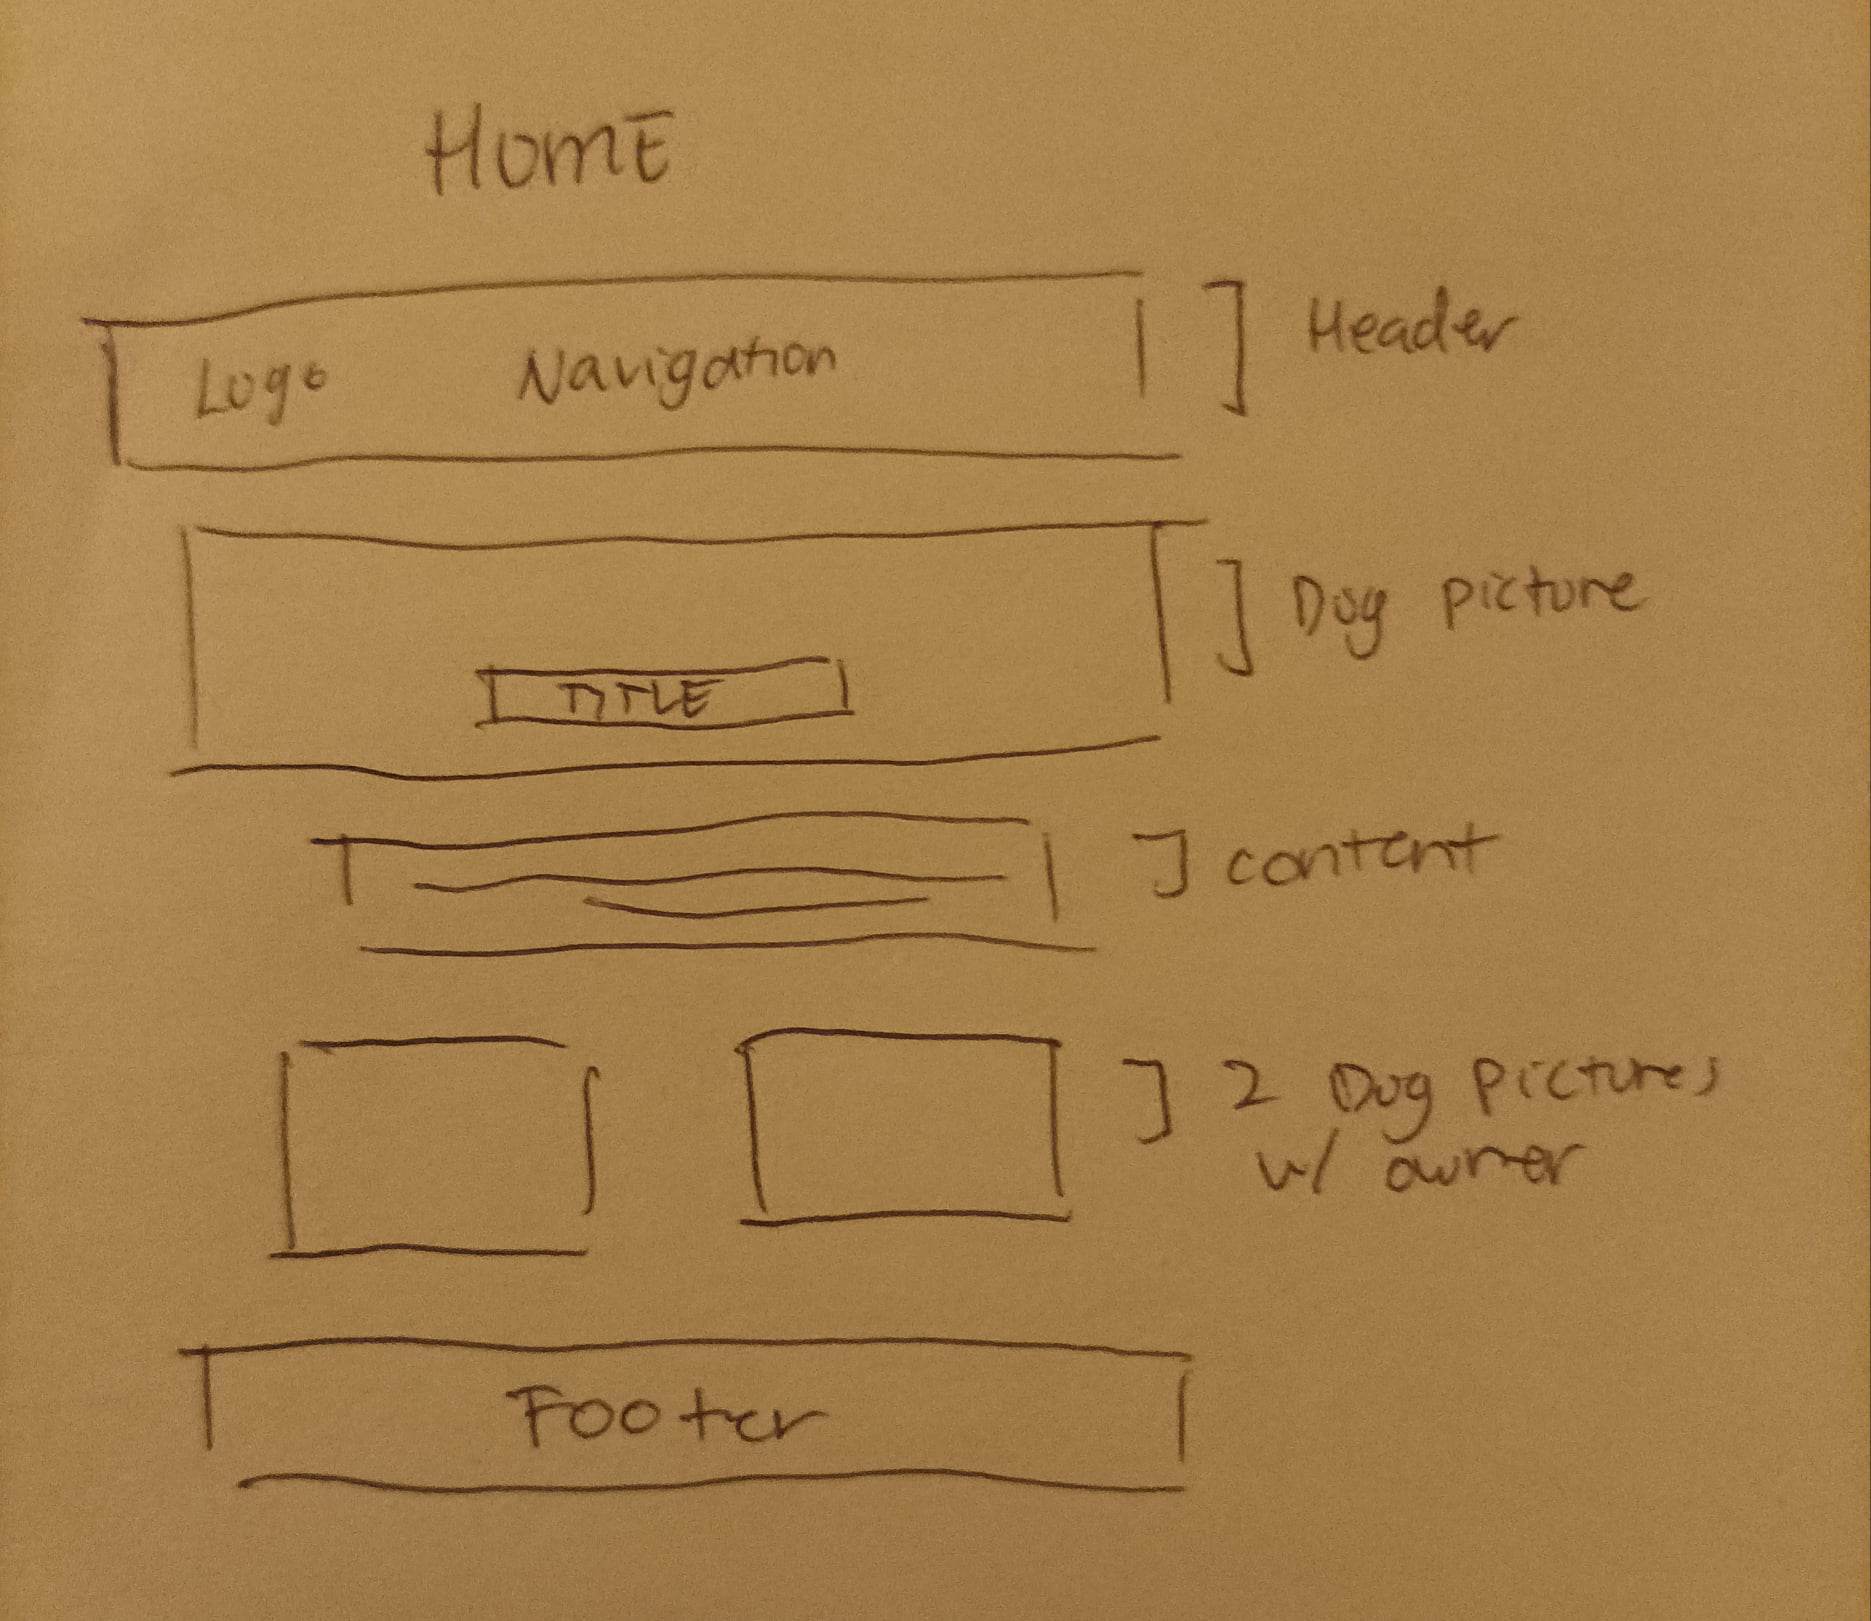 HOME
Logo Navigation
Header
Dog picture
TITLE
content
2 Dog pictures
w/ owner
Footer